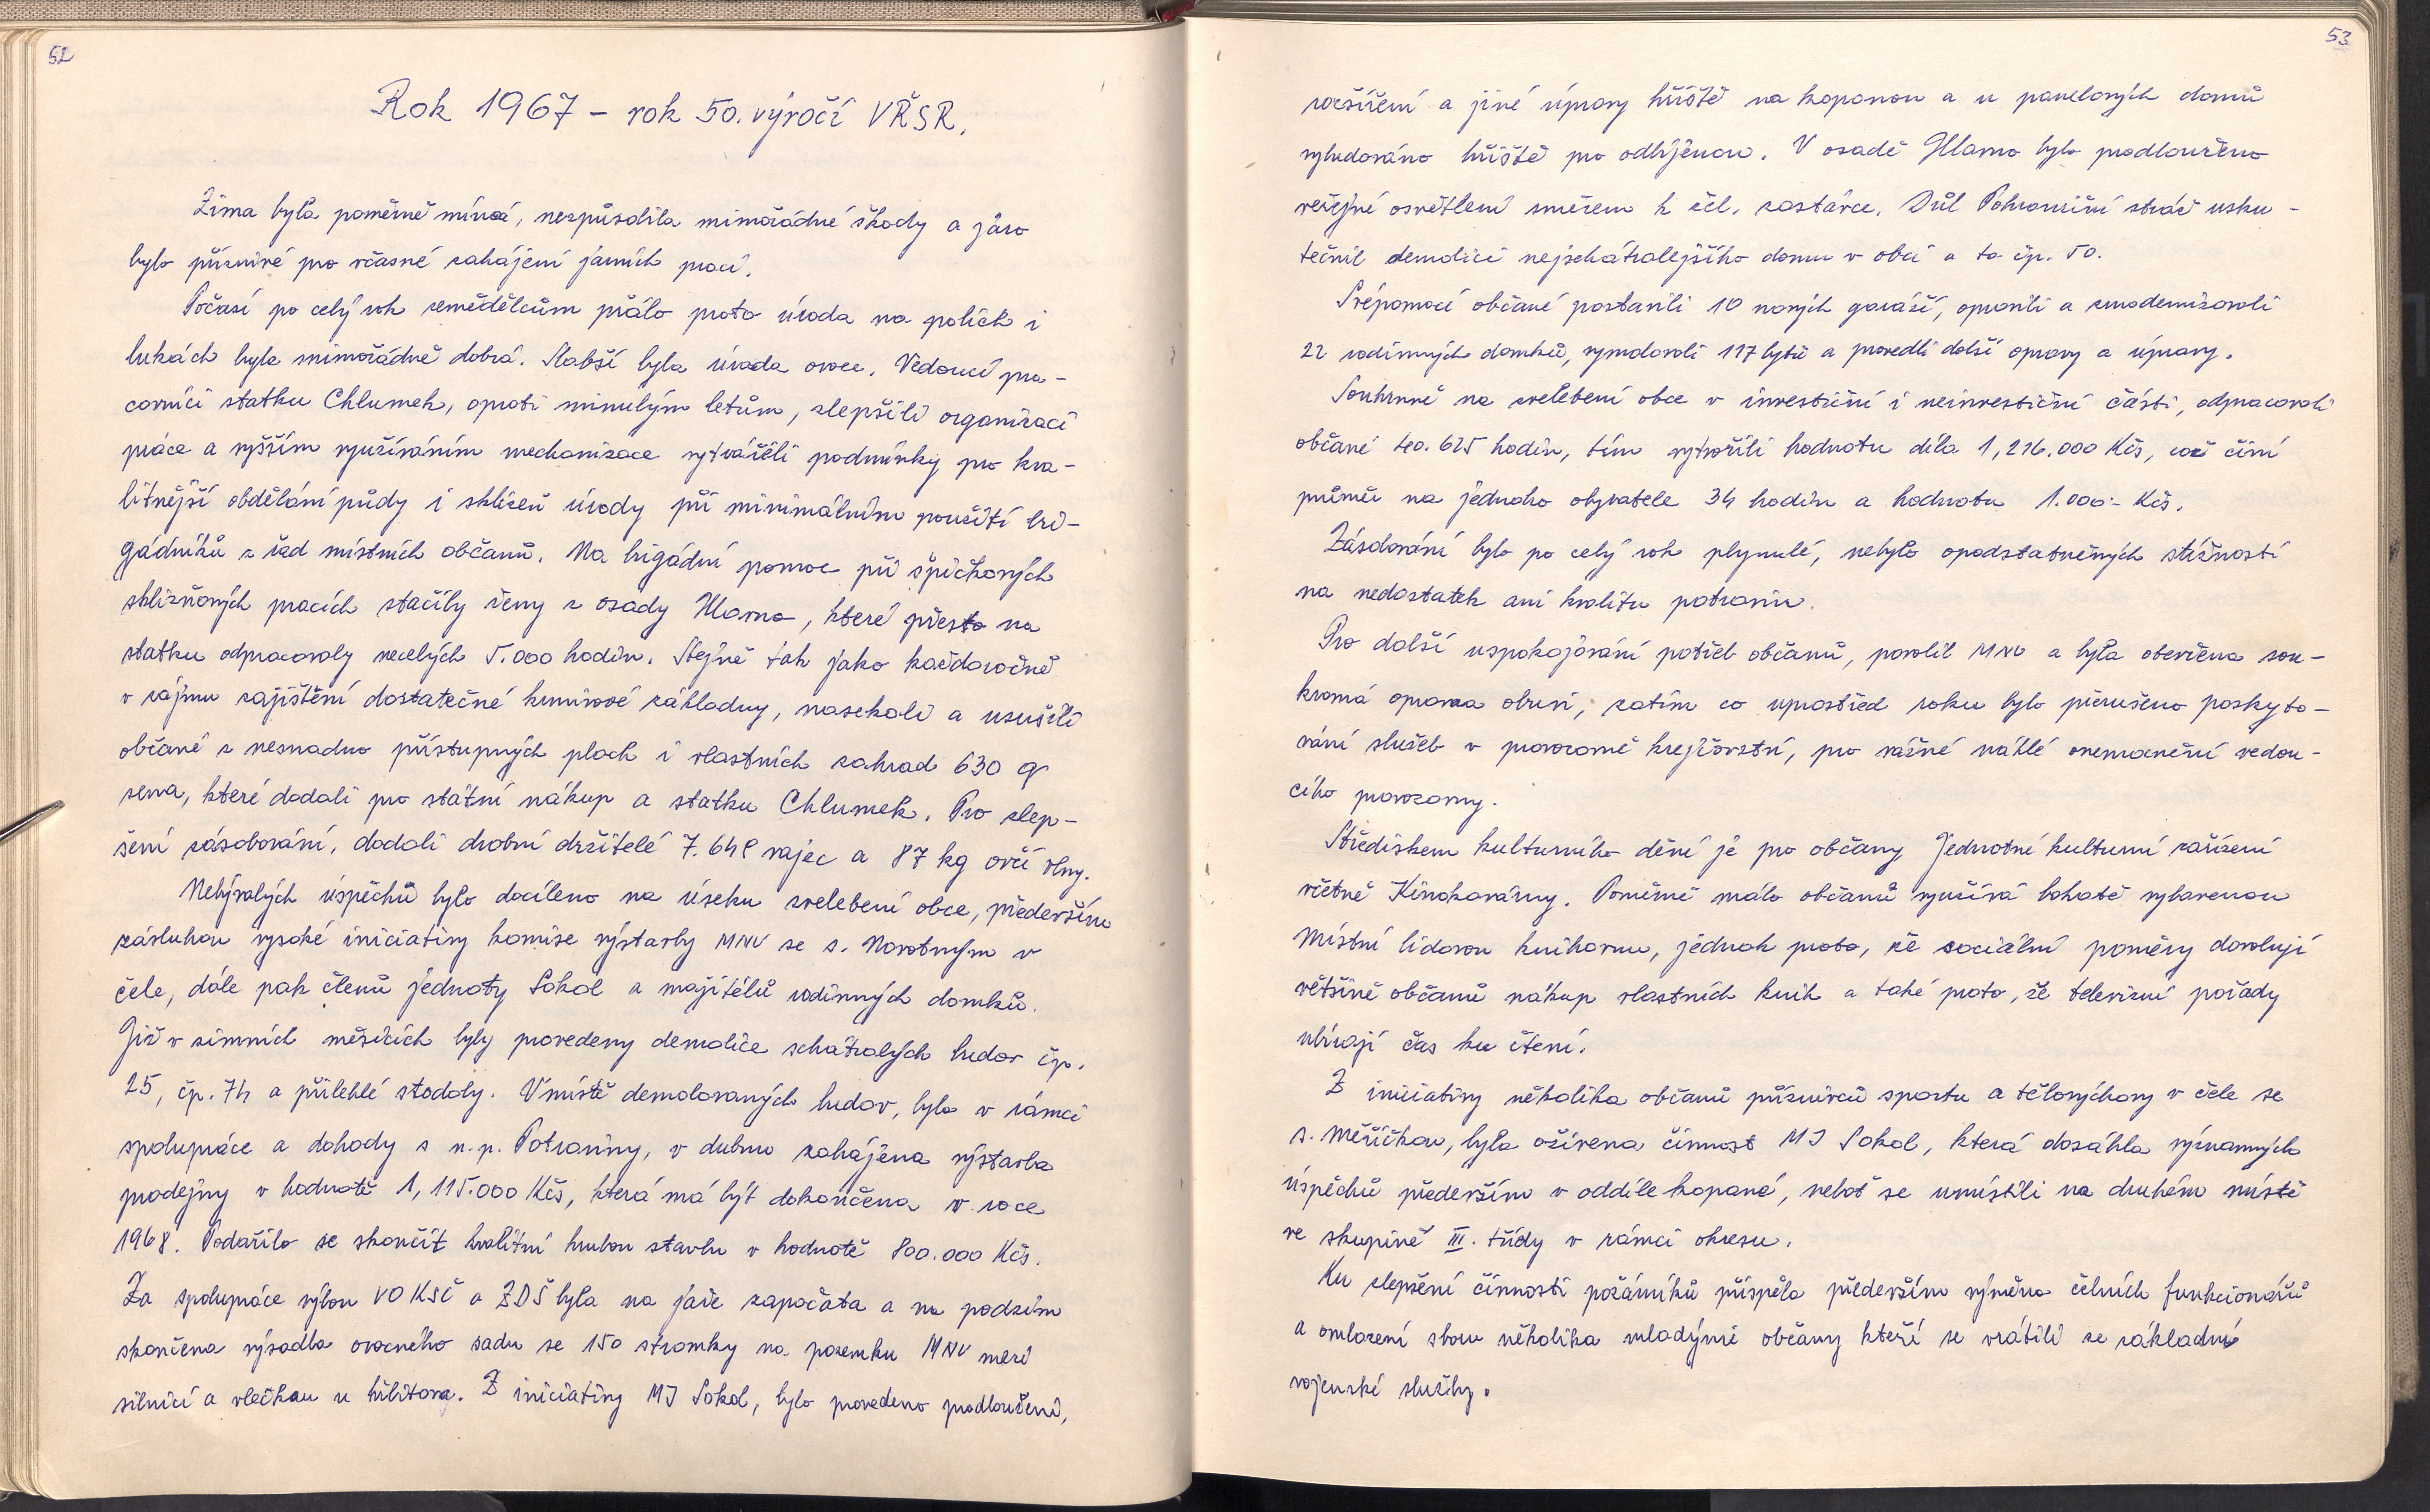 52
Rok 1967 – rok 50. výročí VŘSR.
Zima byla poměrně mírná, nezpůsobila mimořádné škody a jaro
bylo příznivé pro včasné zahájení jarních prací.
Počasí po celý rok zemědělcům přálo proto úroda na polích i
lukách byla mimořádně dobrá. Slabší byla úroda ovoce. Vedoucí pra-
covníci statku Chlumek, oproti minulým letům, zlepšili organizaci
práce a vyšším využíváním mechanizace vytvářeli podmínky pro kva-
litnější obdělání půdy i sklizeň úrody při minimálním použití bri-
gádníků z řad místních občanů. Na brigádní pomoc při špičkových
sklizňových pracích stačily ženy z osady Hlavno, které přesto na
statku odpracovaly necelých 5.000 hodin. Stejně tak jako každoročně
v zájmu zajištění dostatečné krmivové základny, nasekali a usušili
občané z nesnadno přístupných ploch i vlastních zahrad 630 q
sena, které dodali pro státní nákup a statku Chlumek. Pro zlep-
šení zásobování, dodali drobní držitelé 7.648 vajec a 87 kg ovčí vlny.
Nebývalých úspěchů bylo docíleno na úseku zvelebení obce, především
zásluhou vysoké iniciativy komise výstavby MNV se s. Novotným v
čele, dále pak členů jednoty Sokol a majitelů rodinných domků.
Již v zimních měsících byly provedeny demolice schátralých budov čp.
25, čp. 74 a přilehlé stodoly. V místě demolovaných budov, bylo v rámci
spolupráce a dohody s n.p. Potraviny, v dubnu zahájena výstavba
prodejny v hodnotě 1,115.000 Kčs, která má být dokončena v roce
1968. Podařilo se skončit kvalitní hrubou stavbu v hodnotě 800.000 Kčs.
Za spolupráce výboru VO KSČ a ZDŠ byla na jaře započata a na podzim
skončena výsadba ovocného sadu se 150 stromky na pozemku MNV mezi
silnicí a vlečkou u hřbitova. Z iniciativy MJ Sokol, bylo provedeno prodloužení,
53
rozšíření a jiné úpravy hřiště na kopanou a u panelových domů
vybudováno hřiště pro odbíjenou. V osadě Hlavno bylo prodlouženo
veřejné osvětlení směrem k žel. zastávce. Důl Pohraniční stráž usku-
tečnil demolici nejschátralejšího domu v obci a to čp. 50.
Svépomocí občané postavili 10 nových garáží, opravili a zmodernizovali
22 rodinných domků, vymalovali 117 bytů a provedli další opravy a úpravy.
Souhrnně na zvelebení obce v investiční i neinvestiční části, odpracovali
občané 40.625 hodin, tím vytvořili hodnotu díla 1,216.000 Kčs, což činí
průměr na jednoho obyvatele 34 hodin a hodnotu 1.000.- Kčs.
Zásobování bylo po celý rok plynulé, nebylo opodstatněných stížností
na nedostatek ani kvalitu potravin.
Pro další uspokojování potřeb občanů, povolil MNV a byla otevřena sou-
kromá oprava obuvi, zatím co uprostřed roku bylo přerušeno poskyto-
vání služeb v provozovně krejčovství, pro vážné náhlé onemocnění vedou-
cího provozovny.
Střediskem kulturního dění je pro občany Jednotné kulturní zařízení
včetně Kinokavárny. Poměrně málo občanů využívá bohatě vybavenou
Místní lidovou knihovnu, jednak proto, že sociální poměry dovolují
většině občanů nákup vlastních knih a také proto, že televizní pořady
ubírají čas ku čtení.
Z iniciativy několika občanů příznivců sportu a tělovýchovy v čele se
s. Měřičkou, byla oživena činnost MJ Sokol, která dosáhla významných
úspěchů především v oddíle kopané, neboť se umístili na druhém místě
ve skupině III. třídy v rámci okresu.
Ku zlepšení činnosti požárníků přispěla především výměna čelních funkcionářů
a omlazení sboru několika mladými občany kteří se vrátili ze základní
vojenské služby.